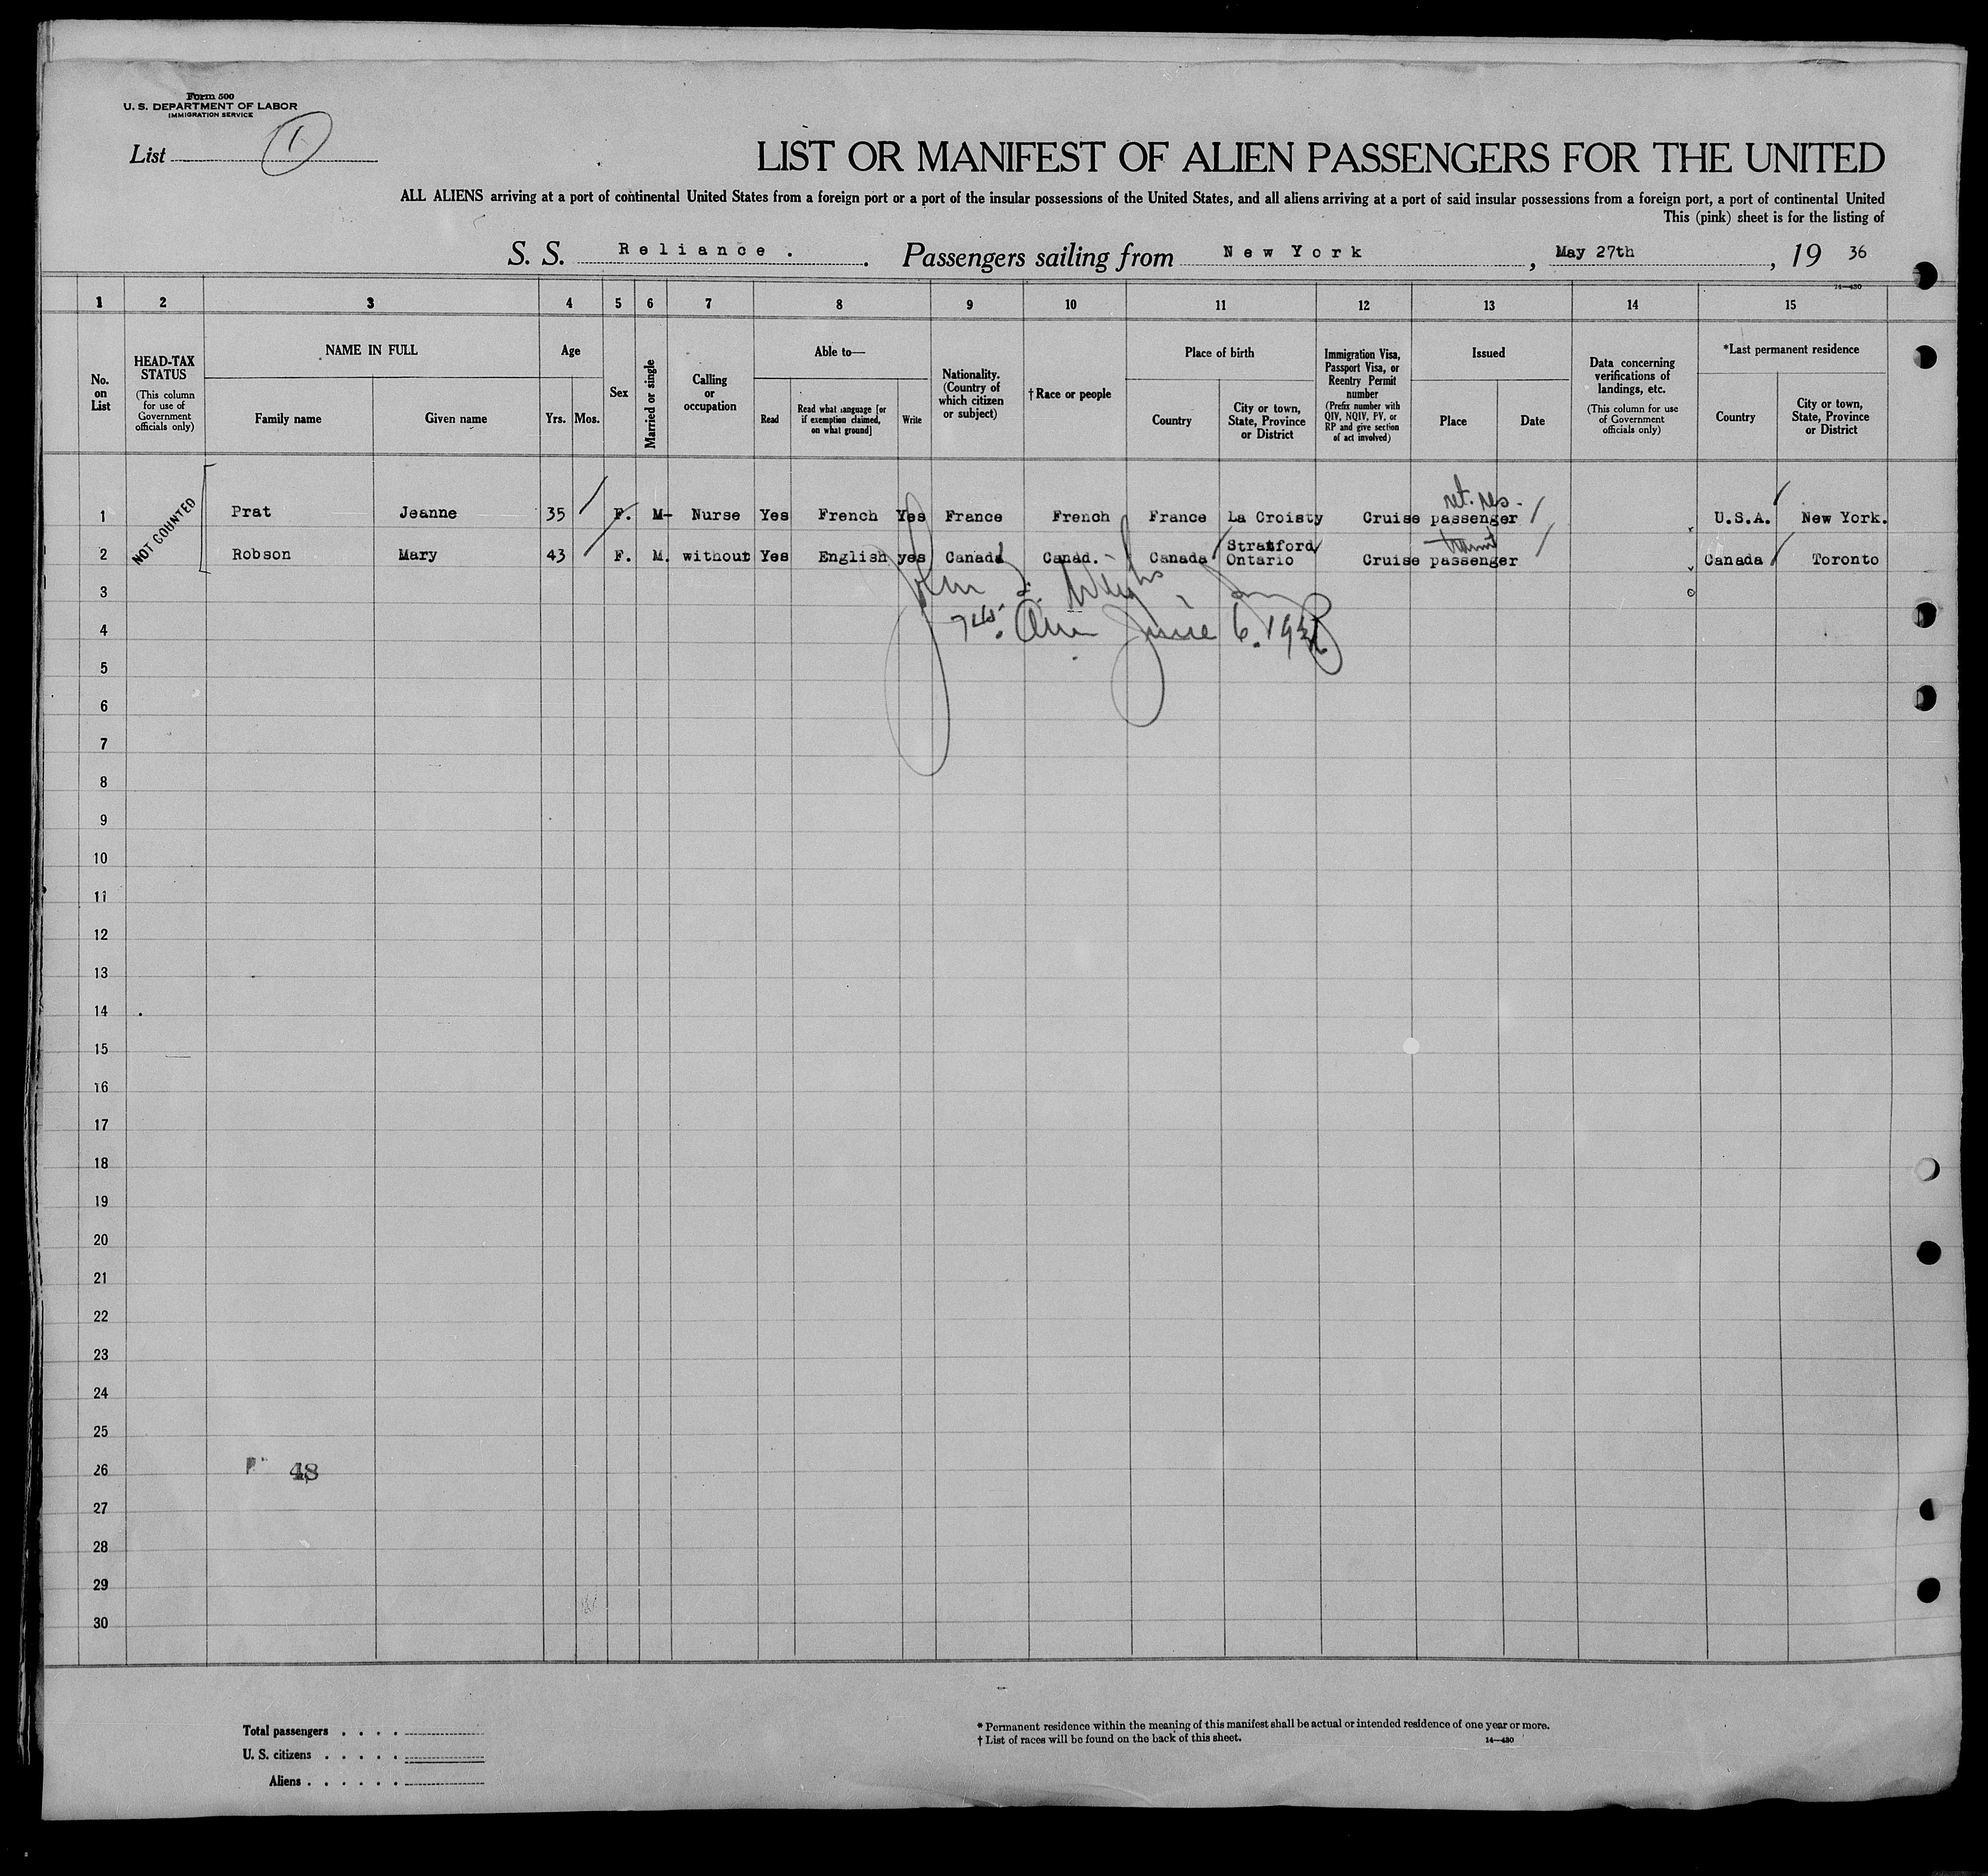 Form 500
U. S. DEPARTMENT OF LABOR
IMMIGRATION SERVICE
List 1
LIST OR MANIFEST OF ALIEN PASSENGERS FOR THE UNITED
ALL ALIENS arriving at a port of continental United States from a foreign port or a port of the insular possessions of the United States, and all aliens arriving at a port of said insular possessions from a foreign port, a port of continental United
This (pink) sheet is for the listing of
S. S. Reliance . . Passengers sailing from New York , May 27th , 19 36
14—430
1 2 3 4 5 6 7 8 9 10 11 12 13 14 15
No. on List
HEAD-TAX STATUS
(This column for use of Government officials only)
NAME IN FULL
Family name
Given name
Age
Yrs. Mos.
Sex
Married or single
Calling or occupation
Able to—
Read
Read what language [or if exemption claimed, on what ground]
Write
Nationality. (Country of which citizen or subject)
† Race or people
Place of birth
Country
City or town, State, Province or District
Immigration Visa, Passport Visa, or Reentry Permit number
(Prefix number with QIV, NQIV, PV, or RP and give section of act involved)
Issued
Place
Date
Data concerning verifications of landings, etc.
(This column for use of Government officials only)
*Last permanent residence
Country
City or town, State, Province or District
NOT COUNTED
ret. res.
1 Prat Jeanne 35 F. M- Nurse Yes French Yes France French France La Croisty Cruise passenger U.S.A. New York.
transit
2 Robson Mary 43 F. M. without Yes English yes Canada Canad. Canada Stratford Ontario Cruise passenger Canada Toronto
3
June 6. 1936
4
5
6
7
8
9
10
11
12
13
14
15
16
17
18
19
20
21
22
23
24
25
26 48
27
28
29
30
Total passengers . . . .
U. S. citizens . . . . .
Aliens . . . . . .
* Permanent residence within the meaning of this manifest shall be actual or intended residence of one year or more.
† List of races will be found on the back of this sheet.
14—430